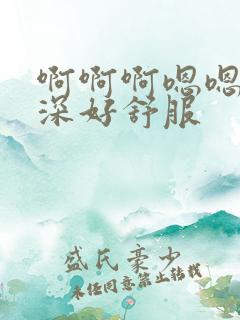 啊啊啊嗯嗯
深好舒服
盛氏豪少
未经同意禁止转载